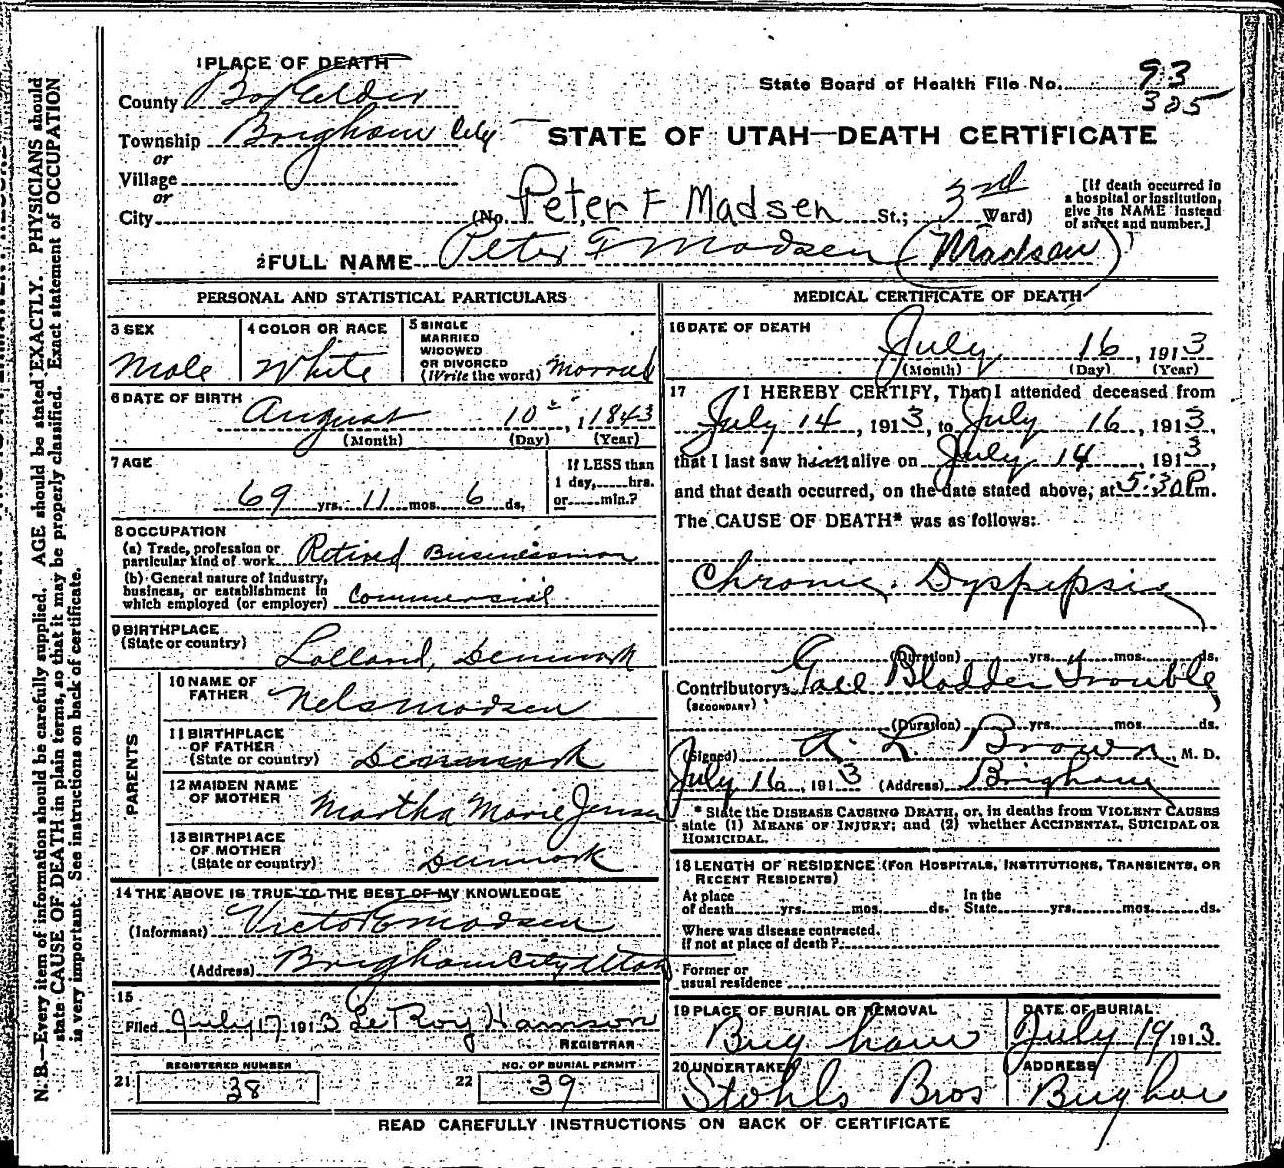 1 PLACE OF DEATH
County Box Elder
Township Brigham City
or
Village
or
City
State Board of Health File No. 93
305
STATE OF UTAH—DEATH CERTIFICATE
(No. Peter F Madsen St.; 3rd Ward)
[If death occurred in
a hospital or institution,
give its NAME instead
of street and number.]
2 FULL NAME Peter F Madsen (Madsen)
PERSONAL AND STATISTICAL PARTICULARS
3 SEX
Male
4 COLOR OR RACE
White
5 SINGLE
MARRIED
WIDOWED
OR DIVORCED
(Write the word) Married
6 DATE OF BIRTH
August 10th, 1843
(Month) (Day) (Year)
7 AGE
69 yrs. 11 mos. 6 ds.
If LESS than
1 day, hrs.
or min.?
8 OCCUPATION
(a) Trade, profession or
particular kind of work Retired Businessman
(b) General nature of Industry,
business, or establishment in
which employed (or employer) Commercial
9 BIRTHPLACE
(State or country)
Lolland, Denmark
PARENTS
10 NAME OF
FATHER Nels Madsen
11 BIRTHPLACE
OF FATHER
(State or country) Denmark
12 MAIDEN NAME
OF MOTHER Martha Marie Jensen
13 BIRTHPLACE
OF MOTHER
(State or country) Denmark
14 THE ABOVE IS TRUE TO THE BEST OF MY KNOWLEDGE
(Informant) Victor E Madsen
(Address) Brigham City Utah
15
Filed July 17 1913 LeRoy Hamson
REGISTRAR
21 REGISTERED NUMBER
38
22 NO. OF BURIAL PERMIT
39
MEDICAL CERTIFICATE OF DEATH
16 DATE OF DEATH
July 16, 1913
(Month) (Day) (Year)
17 I HEREBY CERTIFY, That I attended deceased from
July 14, 1913, to July 16, 1913,
that I last saw him alive on July 14, 1913,
and that death occurred, on the date stated above, at 5:30 P.m.
The CAUSE OF DEATH* was as follows:
Chronic Dyspepsia
(Duration) yrs. mos. ds.
Contributory Gall Bladder Trouble
(SECONDARY)
(Duration) yrs. mos. ds.
(Signed) A. L. Brown, M. D.
July 16, 1913 (Address) Brigham
* State the DISEASE CAUSING DEATH, or, in deaths from VIOLENT CAUSES
state (1) MEANS OF INJURY; and (2) whether ACCIDENTAL, SUICIDAL OR
HOMICIDAL.
18 LENGTH OF RESIDENCE (FOR HOSPITALS, INSTITUTIONS, TRANSIENTS, OR
RECENT RESIDENTS)
At place
of death yrs. mos. ds.
In the
State yrs. mos. ds.
Where was disease contracted,
if not at place of death?
Former or
usual residence
19 PLACE OF BURIAL OR REMOVAL
Brigham
DATE OF BURIAL
July 19 1913
20 UNDERTAKER
Stohls Bros
ADDRESS
Brigham
READ CAREFULLY INSTRUCTIONS ON BACK OF CERTIFICATE
N. B.—Every item of information should be carefully supplied. AGE should be stated EXACTLY. PHYSICIANS should
state CAUSE OF DEATH in plain terms, so that it may be properly classified. Exact statement of OCCUPATION
is very important. See instructions on back of certificate.